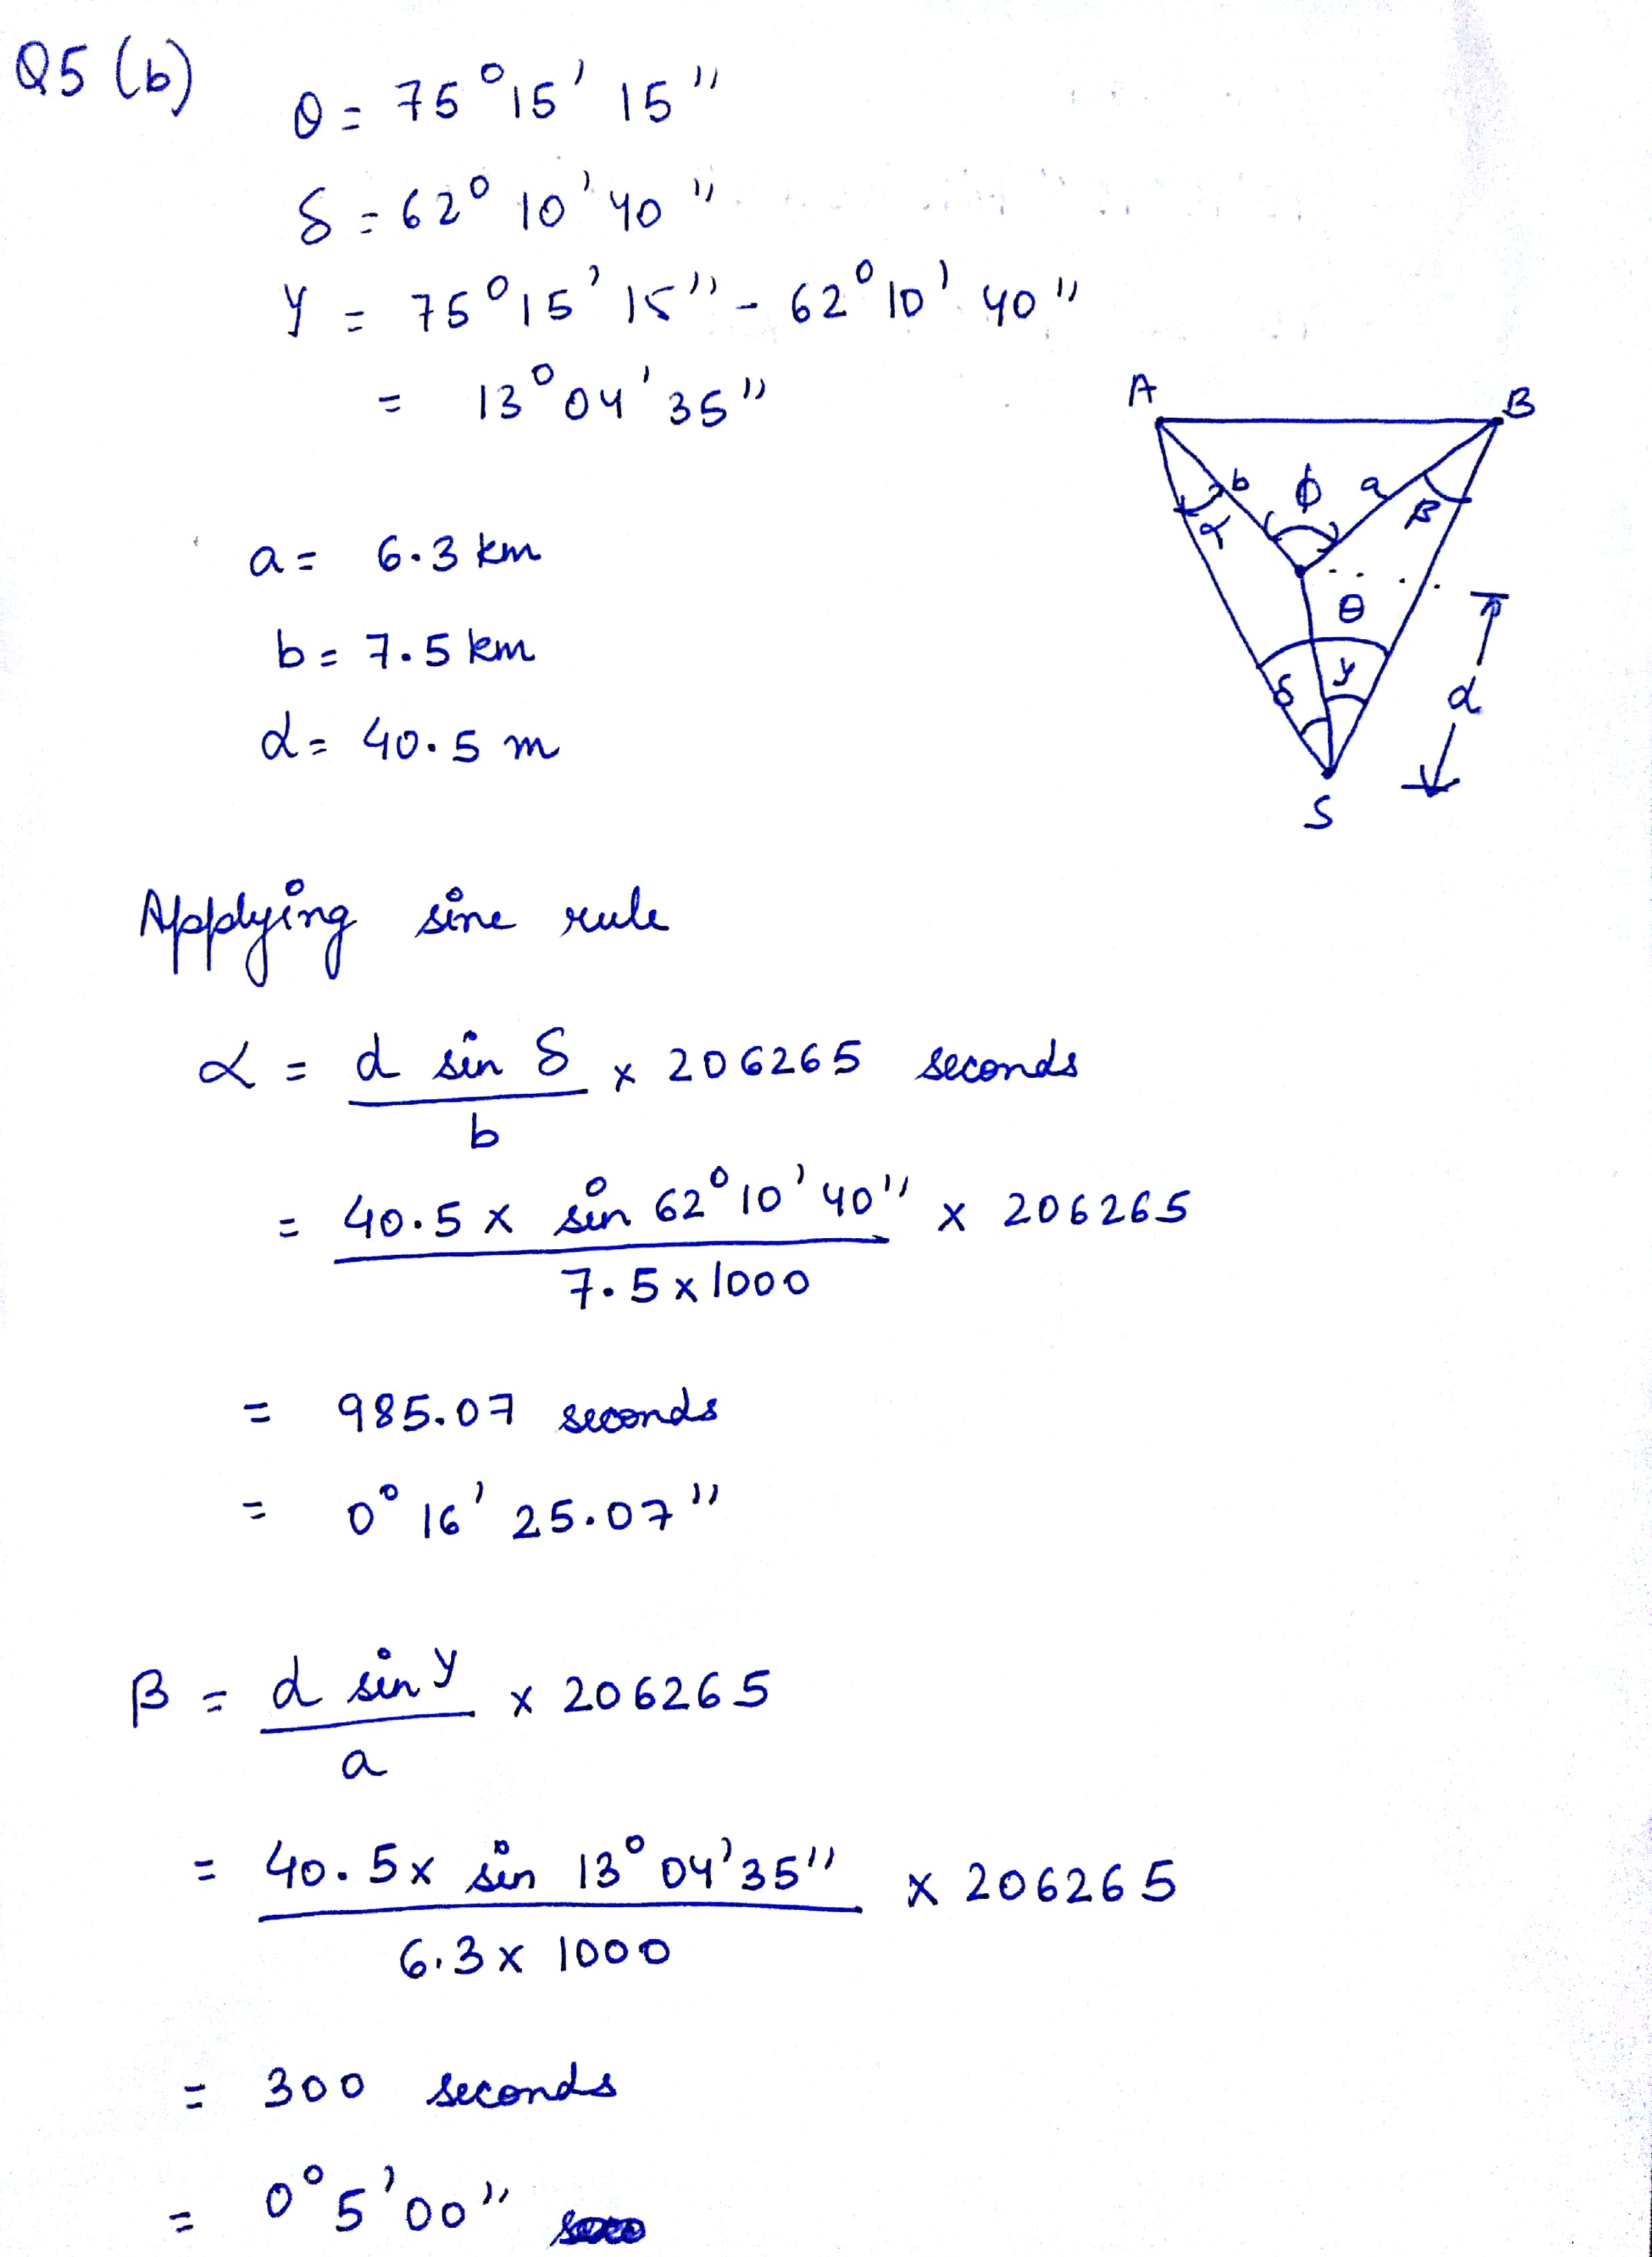 Q5 (b)
θ = 75° 15' 15"
δ = 62° 10' 40"
γ = 75° 15' 15" - 62° 10' 40"
= 13° 04' 35"
a = 6.3 km
b = 7.5 km
d = 40.5 m
A
B
b
ϕ
a
α
β
θ
δ
γ
d
S
Applying sine rule
α = d sin δ / b × 206265 seconds
= 40.5 × sin 62° 10' 40" / 7.5 × 1000 × 206265
= 985.07 seconds
= 0° 16' 25.07"
β = d sin γ / a × 206265
= 40.5 × sin 13° 04' 35" / 6.3 × 1000 × 206265
= 300 seconds
= 0° 5' 00"